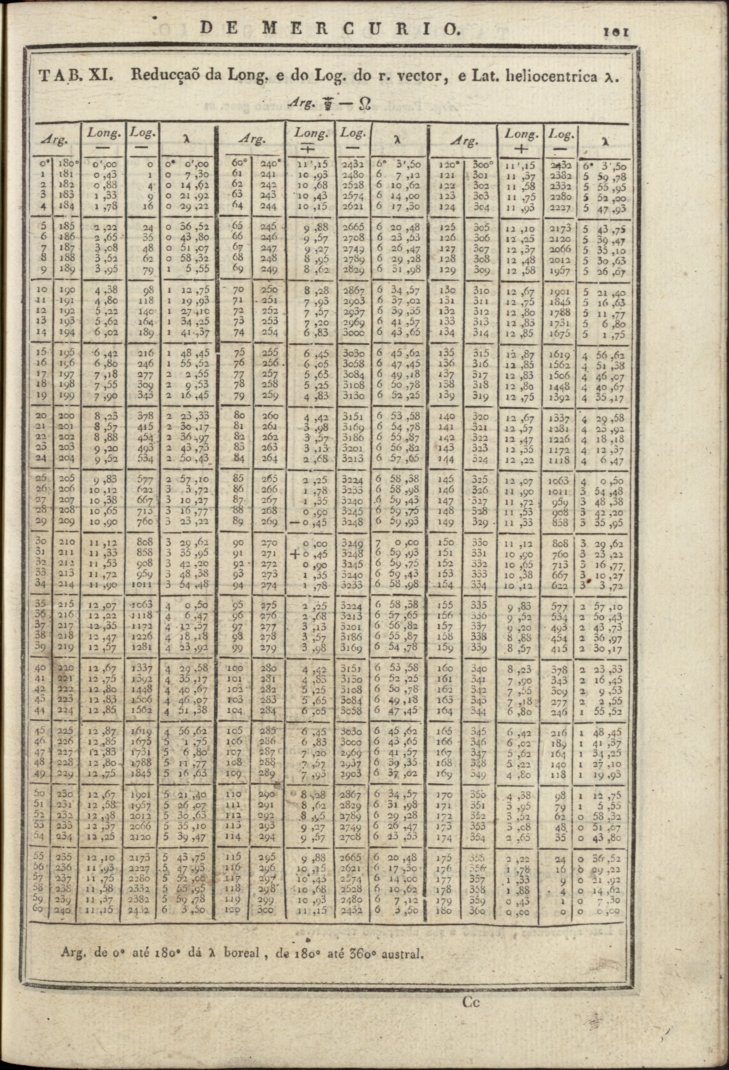 DE MERCURIO. 101
TAB. XI. Reducçaõ da Long. e do Log. do r. vector, e Lat. heliocentrica λ.
Arg. ☿ — ☊
Arg. Long. — Log. — λ Arg. Long. ∓ Log. — λ Arg. Long. + Log. — λ
0° 180° 0',00 0 0° 0',00 60° 240° 11',15 2432 6° 3',50 120° 300° 11',15 2432 6° 3',50
1 181 0 ,43 1 0 7 ,30 61 241 10 ,93 2480 6 7 ,12 121 301 11 ,37 2382 5 59 ,78
2 182 0 ,88 4 0 14 ,62 62 242 10 ,68 2528 6 10 ,62 122 302 11 ,58 2332 5 55 ,95
3 183 1 ,33 9 0 21 ,92 63 243 10 ,43 2574 6 14 ,00 123 303 11 ,75 2280 5 52 ,00
4 184 1 ,78 16 0 29 ,22 64 244 10 ,15 2621 6 17 ,30 124 304 11 ,93 2227 5 47 ,93
5 185 2 ,22 24 0 36 ,52 65 245 9 ,88 2665 6 20 ,48 125 305 12 ,10 2173 5 43 ,75
6 186 2 ,65 35 0 43 ,80 66 246 9 ,57 2708 6 23 ,53 126 306 12 ,25 2120 5 39 ,47
7 187 3 ,08 48 0 51 ,07 67 247 9 ,27 2749 6 26 ,47 127 307 12 ,37 2066 5 35 ,10
8 188 3 ,52 62 0 58 ,32 68 248 8 ,95 2789 6 29 ,28 128 308 12 ,48 2012 5 30 ,63
9 189 3 ,95 79 1 5 ,55 69 249 8 ,62 2829 6 31 ,98 129 309 12 ,58 1957 5 26 ,07
10 190 4 ,38 98 1 12 ,75 70 250 8 ,28 2867 6 34 ,57 130 310 12 ,67 1901 5 21 ,40
11 191 4 ,80 118 1 19 ,93 71 251 7 ,93 2903 6 37 ,02 131 311 12 ,75 1845 5 16 ,63
12 192 5 ,22 140 1 27 ,10 72 252 7 ,57 2937 6 39 ,35 132 312 12 ,80 1788 5 11 ,77
13 193 5 ,62 164 1 34 ,25 73 253 7 ,20 2969 6 41 ,57 133 313 12 ,83 1731 5 6 ,80
14 194 6 ,02 189 1 41 ,37 74 254 6 ,83 3000 6 43 ,65 134 314 12 ,85 1675 5 1 ,75
15 195 6 ,42 216 1 48 ,45 75 255 6 ,45 3030 6 45 ,62 135 315 12 ,87 1619 4 56 ,62
16 196 6 ,80 246 1 55 ,52 76 256 6 ,05 3058 6 47 ,45 136 316 12 ,85 1562 4 51 ,38
17 197 7 ,18 277 2 2 ,55 77 257 5 ,65 3084 6 49 ,18 137 317 12 ,83 1506 4 46 ,07
18 198 7 ,55 309 2 9 ,53 78 258 5 ,25 3108 6 50 ,78 138 318 12 ,80 1448 4 40 ,67
19 199 7 ,90 343 2 16 ,45 79 259 4 ,83 3130 6 52 ,25 139 319 12 ,75 1392 4 35 ,17
20 200 8 ,23 378 2 23 ,33 80 260 4 ,42 3151 6 53 ,58 140 320 12 ,67 1337 4 29 ,58
21 201 8 ,57 415 2 30 ,17 81 261 3 ,98 3169 6 54 ,78 141 321 12 ,57 1281 4 23 ,92
22 202 8 ,88 454 2 36 ,97 82 262 3 ,57 3186 6 55 ,87 142 322 12 ,47 1226 4 18 ,18
23 203 9 ,20 493 2 43 ,73 83 263 3 ,13 3201 6 56 ,82 143 323 12 ,35 1172 4 12 ,37
24 204 9 ,52 534 2 50 ,43 84 264 2 ,68 3213 6 57 ,65 144 324 12 ,22 1118 4 6 ,47
25 205 9 ,83 577 2 57 ,10 85 265 2 ,25 3224 6 58 ,38 145 325 12 ,07 1063 4 0 ,50
26 206 10 ,12 622 3 3 ,72 86 266 1 ,78 3233 6 58 ,98 146 326 11 ,90 1011 3 54 ,48
27 207 10 ,38 667 3 10 ,27 87 267 1 ,35 3240 6 59 ,43 147 327 11 ,72 959 3 48 ,38
28 208 10 ,65 713 3 16 ,77 88 268 0 ,90 3245 6 59 ,75 148 328 11 ,53 908 3 42 ,20
29 209 10 ,90 760 3 23 ,22 89 269 —0 ,45 3248 6 59 ,93 149 329 11 ,33 858 3 35 ,95
30 210 11 ,12 808 3 29 ,62 90 270 0 ,00 3249 7 0 ,00 150 330 11 ,12 808 3 29 ,62
31 211 11 ,33 858 3 35 ,95 91 271 +0 ,45 3248 6 59 ,93 151 331 10 ,90 760 3 23 ,22
32 212 11 ,53 908 3 42 ,20 92 272 0 ,90 3245 6 59 ,75 152 332 10 ,65 713 3 16 ,77
33 213 11 ,72 959 3 48 ,38 93 273 1 ,35 3240 6 59 ,43 153 333 10 ,38 667 3 10 ,27
34 214 11 ,90 1011 3 54 ,48 94 274 1 ,78 3233 6 58 ,98 154 334 10 ,12 622 3 3 ,72
35 215 12 ,07 1063 4 0 ,50 95 275 2 ,25 3224 6 58 ,38 155 335 9 ,83 577 2 57 ,10
36 216 12 ,22 1118 4 6 ,47 96 276 2 ,68 3213 6 57 ,65 156 336 9 ,52 534 2 50 ,43
37 217 12 ,35 1172 4 12 ,37 97 277 3 ,13 3201 6 56 ,82 157 337 9 ,20 493 2 43 ,73
38 218 12 ,47 1226 4 18 ,18 98 278 3 ,57 3186 6 55 ,87 158 338 8 ,88 454 2 36 ,97
39 219 12 ,57 1281 4 23 ,92 99 279 3 ,98 3169 6 54 ,78 159 339 8 ,57 415 2 30 ,17
40 220 12 ,67 1337 4 29 ,58 100 280 4 ,42 3151 6 53 ,58 160 340 8 ,23 378 2 23 ,33
41 221 12 ,75 1392 4 35 ,17 101 281 4 ,83 3130 6 52 ,25 161 341 7 ,90 343 2 16 ,45
42 222 12 ,80 1448 4 40 ,67 102 282 5 ,25 3108 6 50 ,78 162 342 7 ,55 309 2 9 ,53
43 223 12 ,83 1506 4 46 ,07 103 283 5 ,65 3084 6 49 ,18 163 343 7 ,18 277 2 2 ,55
44 224 12 ,85 1562 4 51 ,38 104 284 6 ,05 3058 6 47 ,45 164 344 6 ,80 246 1 55 ,52
45 225 12 ,87 1619 4 56 ,62 105 285 6 ,45 3030 6 45 ,62 165 345 6 ,42 216 1 48 ,45
46 226 12 ,85 1675 5 1 ,75 106 286 6 ,83 3000 6 43 ,65 166 346 6 ,02 189 1 41 ,37
47 227 12 ,83 1731 5 6 ,80 107 287 7 ,20 2969 6 41 ,57 167 347 5 ,62 164 1 34 ,25
48 228 12 ,80 1788 5 11 ,77 108 288 7 ,57 2937 6 39 ,35 168 348 5 ,22 140 1 27 ,10
49 229 12 ,75 1845 5 16 ,63 109 289 7 ,93 2903 6 37 ,02 169 349 4 ,80 118 1 19 ,93
50 230 12 ,67 1901 5 21 ,40 110 290 8 ,28 2867 6 34 ,57 170 350 4 ,38 98 1 12 ,75
51 231 12 ,58 1957 5 26 ,07 111 291 8 ,62 2829 6 31 ,98 171 351 3 ,95 79 1 5 ,55
52 232 12 ,48 2012 5 30 ,63 112 292 8 ,95 2789 6 29 ,28 172 352 3 ,52 62 0 58 ,32
53 233 12 ,37 2066 5 35 ,10 113 293 9 ,27 2749 6 26 ,47 173 353 3 ,08 48 0 51 ,07
54 234 12 ,25 2120 5 39 ,47 114 294 9 ,57 2708 6 23 ,53 174 354 2 ,65 35 0 43 ,80
55 235 12 ,10 2173 5 43 ,75 115 295 9 ,88 2665 6 20 ,48 175 355 2 ,22 24 0 36 ,52
56 236 11 ,93 2227 5 47 ,93 116 296 10 ,15 2621 6 17 ,30 176 356 1 ,78 16 0 29 ,22
57 237 11 ,75 2280 5 52 ,00 117 297 10 ,43 2574 6 14 ,00 177 357 1 ,33 9 0 21 ,92
58 238 11 ,58 2332 5 55 ,95 118 298 10 ,68 2528 6 10 ,62 178 358 1 ,88 4 0 14 ,62
59 239 11 ,37 2382 5 59 ,78 119 299 10 ,93 2480 6 7 ,12 179 359 0 ,43 1 0 7 ,30
60 240 11 ,15 2432 6 3 ,50 120 300 11 ,15 2432 6 3 ,50 180 360 0 ,00 0 0 0 ,00
Arg. de 0° até 180° dá λ boreal, de 180° até 360° austral.
Cc